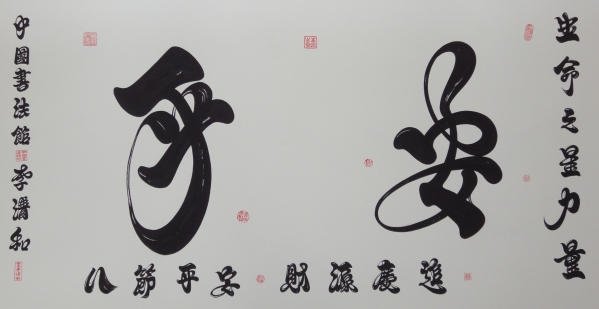 生命之星力量
平安
八節平安 財源廣進
中國書法館 李潛和